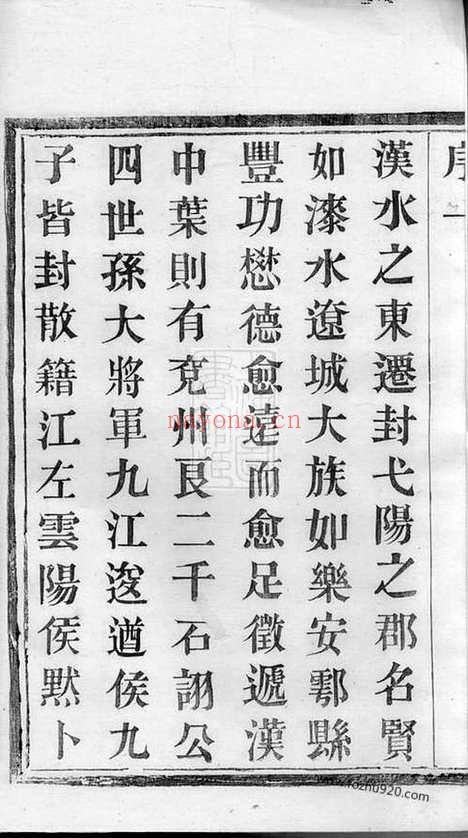 序一
漢水之東遷封弋陽之郡名賢
如漆水遼城大族如樂安鄠縣
豐功懋德愈遠而愈足徵遞漢
中葉則有兗州良二千石詡公
四世孫大將軍九江逡遒侯九
子皆封散籍江左雲陽侯黙卜
nayona.cn
www.rozhu920.com